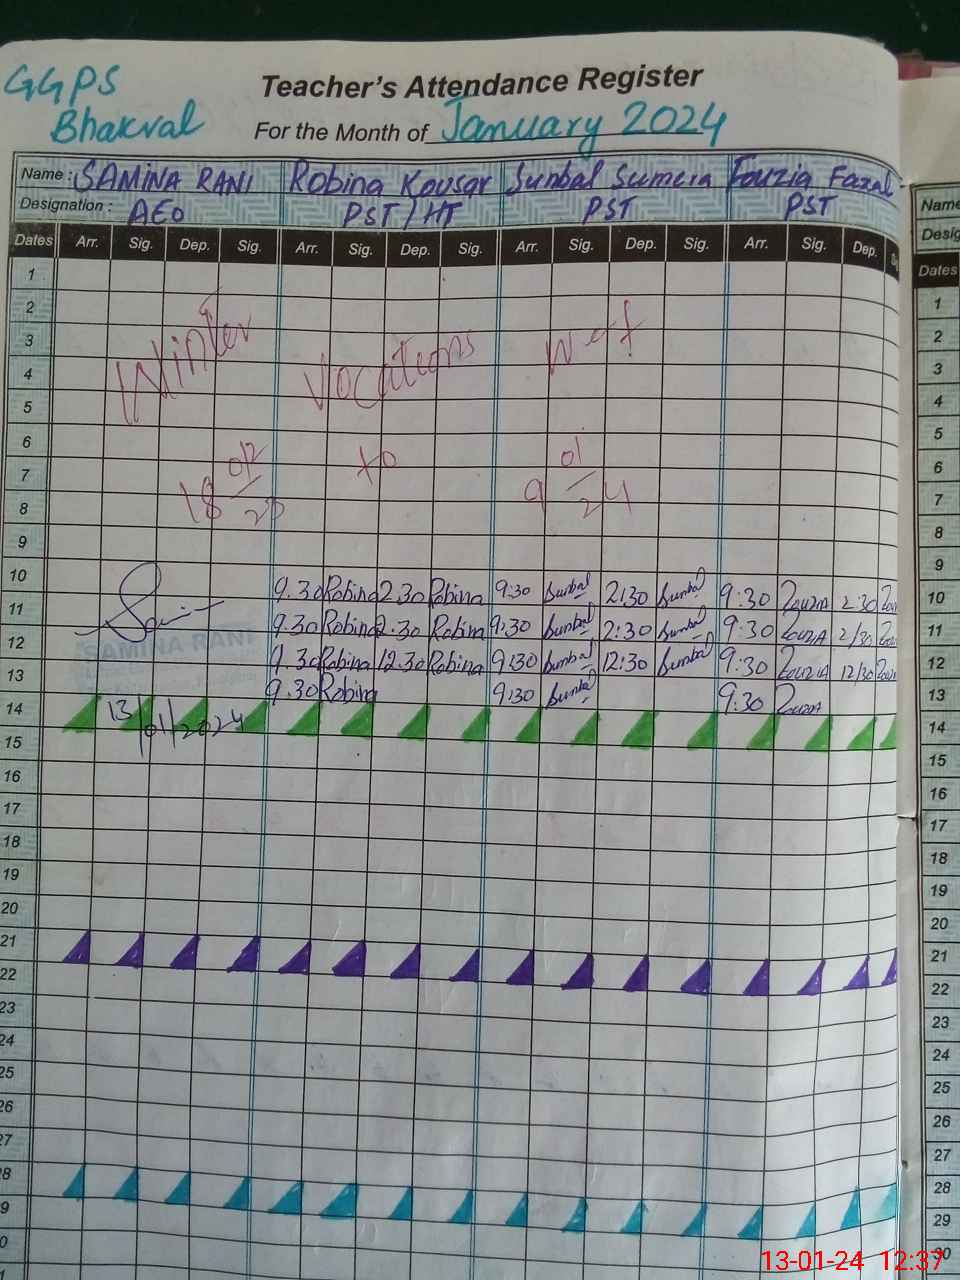 GGPS
Bhakral
Teacher's Attendance Register
For the Month of January 2024
Name : SAMINA RANI Robina Kousar Sunbal Sumera Fouzia Fazal
Designation : AEO PST/HT PST PST
Dates Arr. Sig. Dep. Sig. Arr. Sig. Dep. Sig. Arr. Sig. Dep. Sig. Arr. Sig. Dep.
1
2
3 Winter Vocations w-e-f
4
5
6
7 to
8 18 9 01/24
9
10 9.30 Robina 2.30 Robina 9:30 Sunbal 2:30 Sunbal 9:30 Fouzia 2:30
11 9.30 Robina 2.30 Robina 9:30 Sunbal 2:30 Sunbal 9:30 Fouzia 2/30
12 9.30 Robina 12.30 Robina 9:30 Sunbal 12:30 Sunbal 9:30 Fouzia 12/30
SAMINA RANI
13 9.30 Robina 9:30 Sunbal 9:30 Fouzia
14 13/01/2024
15
16
17
18
19
20
21
22
23
24
25
26
27
28
29
Name
Desig
Dates
1
2
3
4
5
6
7
8
9
10
11
12
13
14
15
16
17
18
19
20
21
22
23
24
25
26
27
28
29
30
13-01-24 12:37